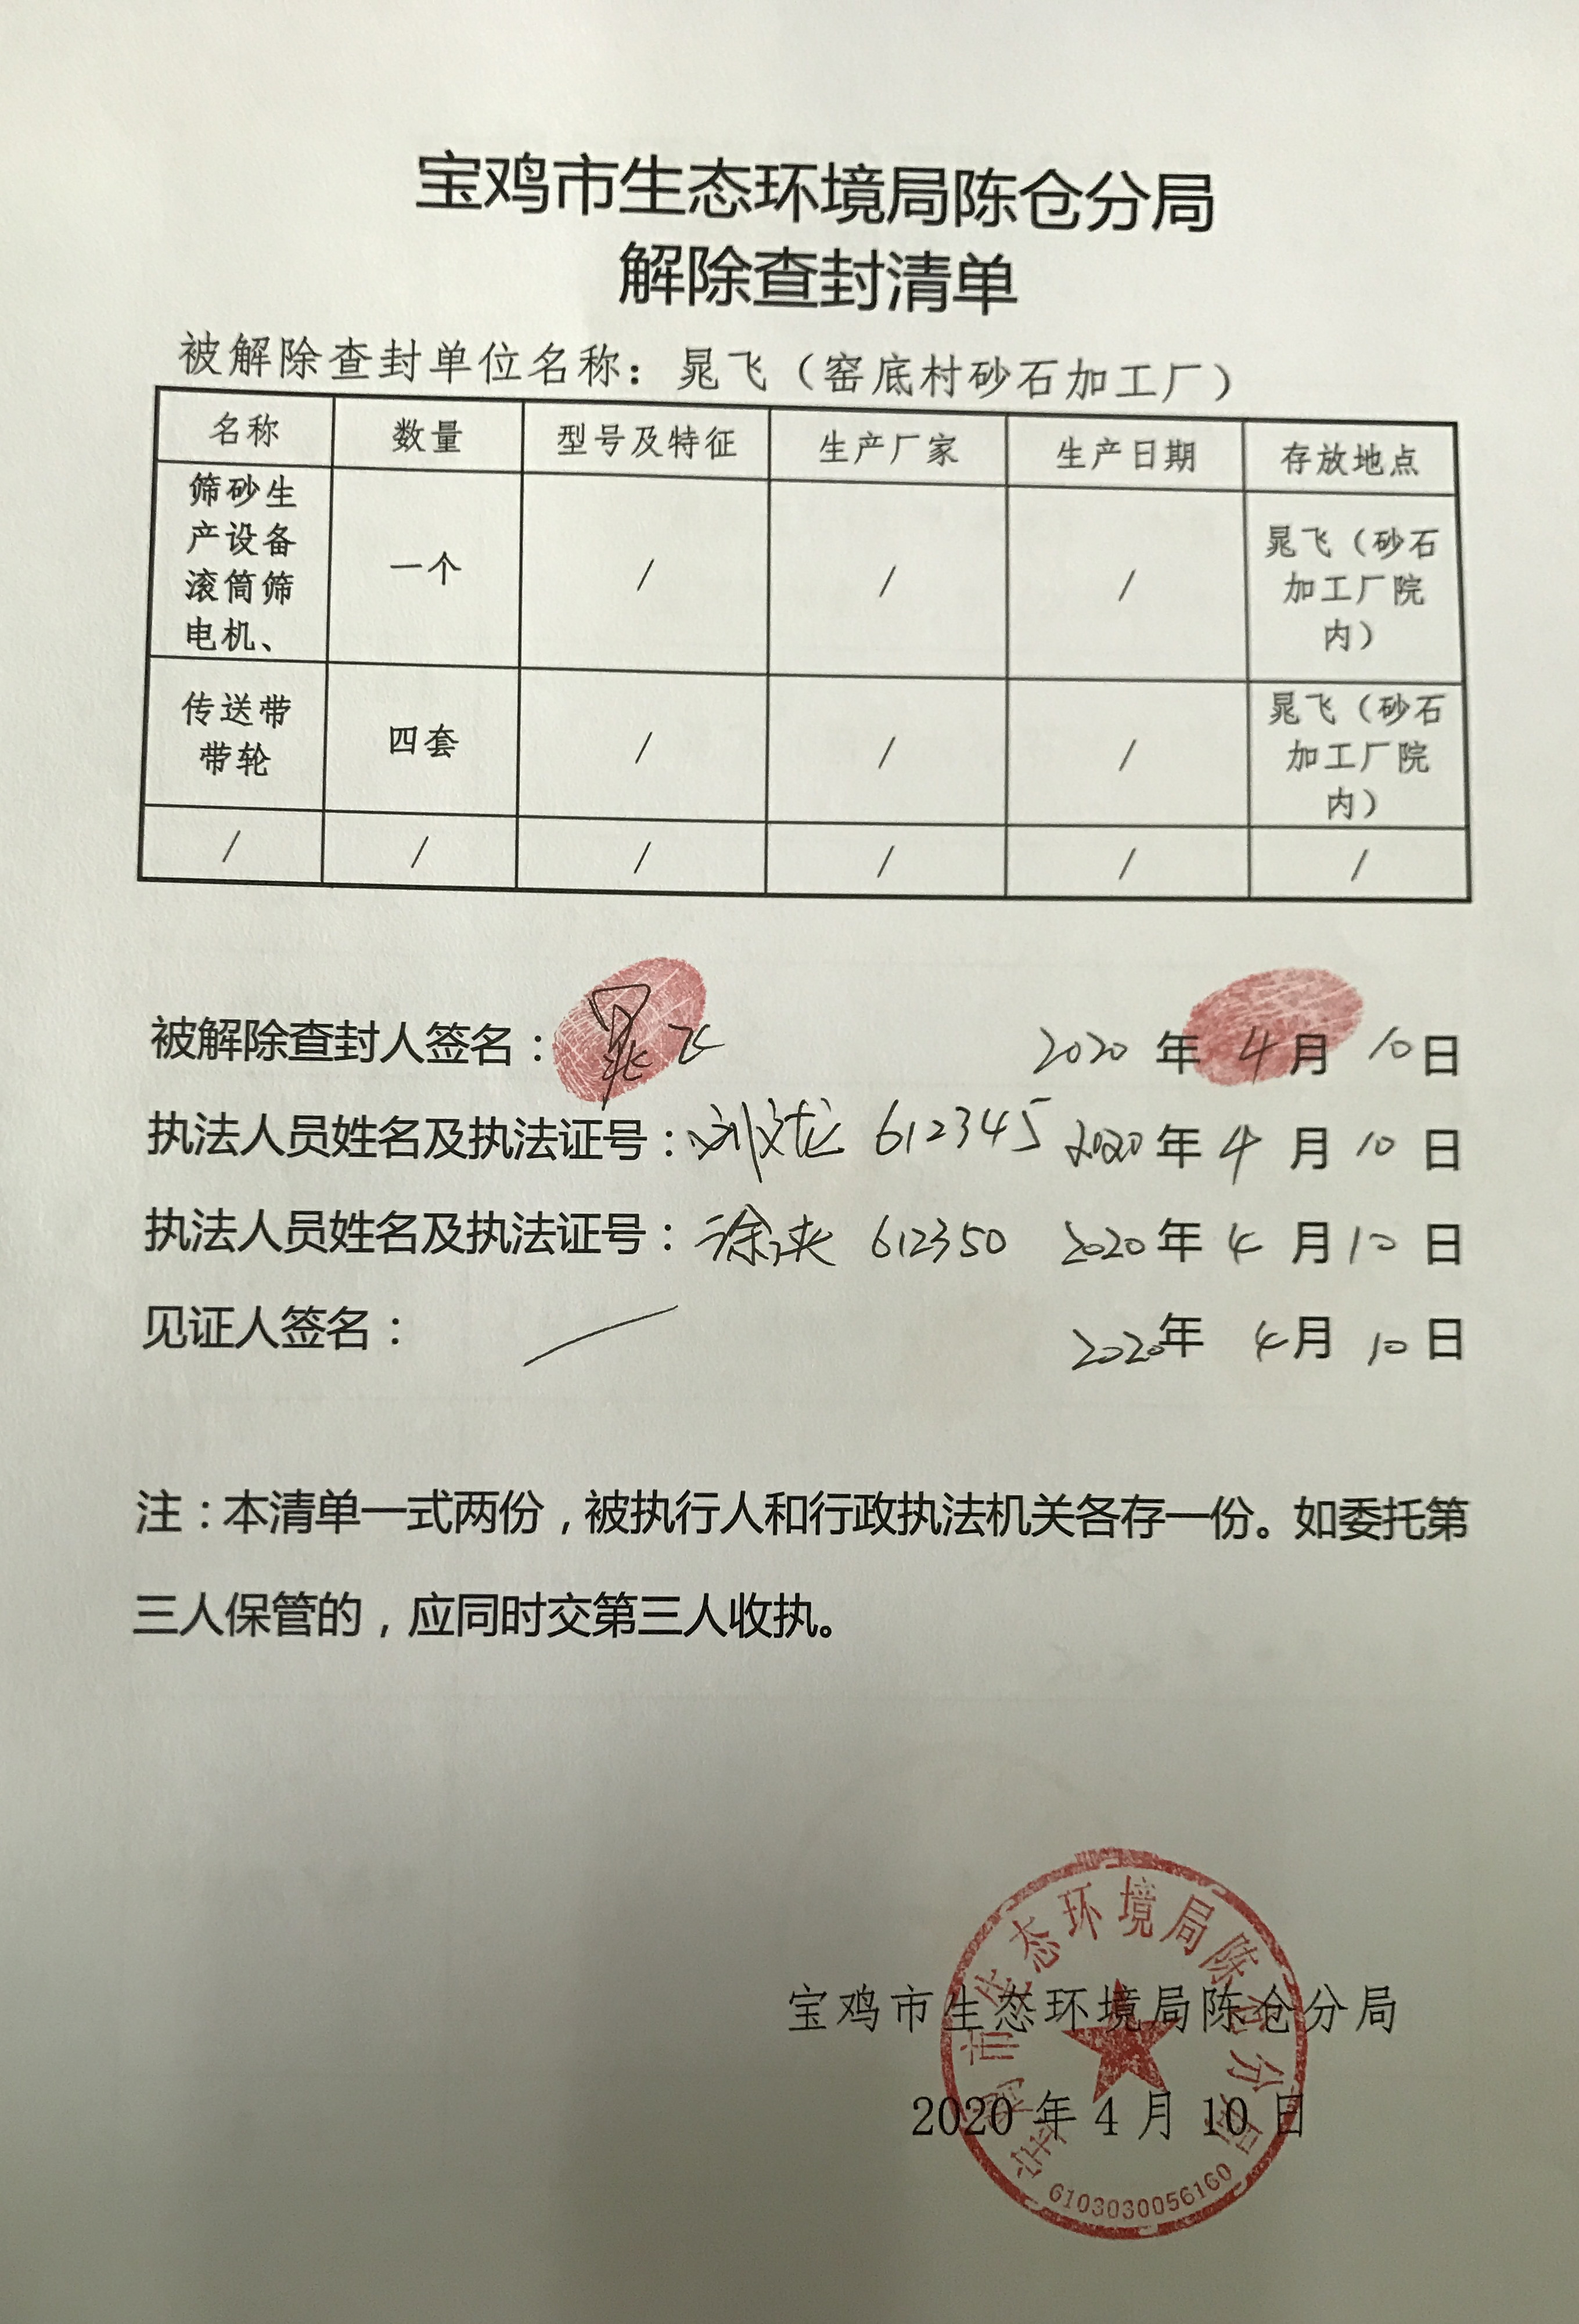 宝鸡市生态环境局陈仓分局
解除查封清单
被解除查封单位名称：晁飞（窑底村砂石加工厂）
名称 数量 型号及特征 生产厂家 生产日期 存放地点
筛砂生
产设备
滚筒筛
电机、
一个
/
/
/
晁飞（砂石
加工厂院
内）
传送带
带轮
四套
/
/
/
晁飞（砂石
加工厂院
内）
/ / / / / /
被解除查封人签名：晁飞 2020年4月10日
执法人员姓名及执法证号：刘文龙 612345 2020年4月10日
执法人员姓名及执法证号：徐 612350 2020年4月10日
见证人签名： / 2020年4月10日
注：本清单一式两份，被执行人和行政执法机关各存一份。如委托第
三人保管的，应同时交第三人收执。
宝鸡市生态环境局陈仓分局
2020年4月10日
宝鸡市生态环境局陈仓分局
6103030056160